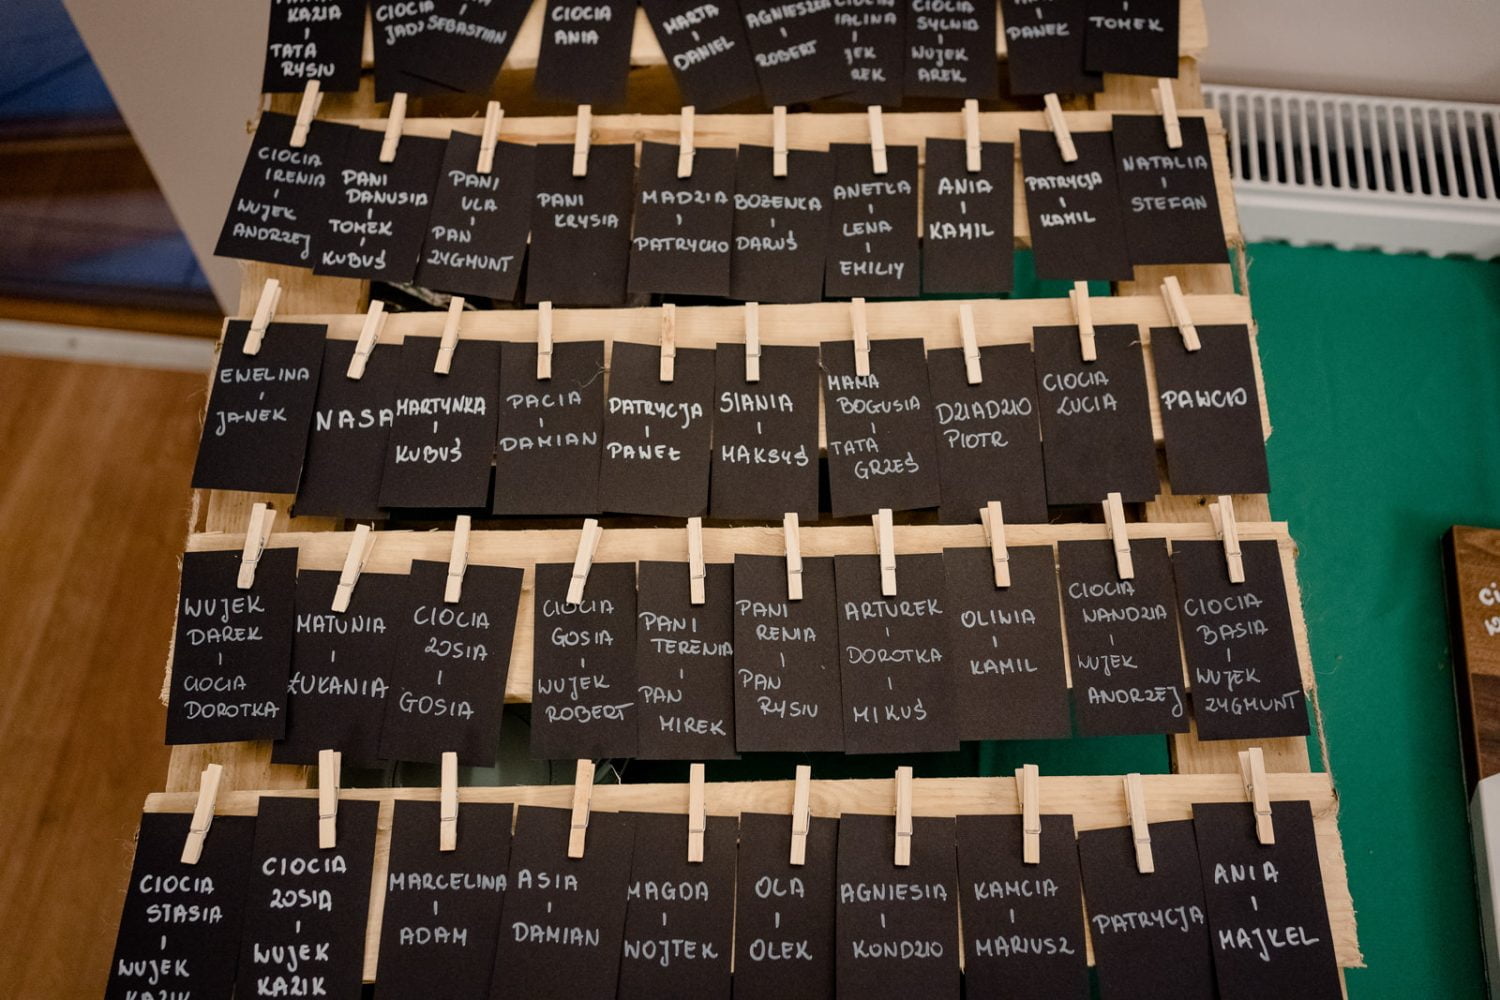 KAZIA
I
TATA
RYSIU
CIOCIA
SEBASTIAN
CIOCIA
ANIA
MARTA
I
DANIEL
AGNIESZKA
I
ROBERT
CIOCIA
I
CIOCIA
SYLWIA
I
WUJEK
AREK
I
PAWEŁ
I
TOMEK
CIOCIA
IRENIA
I
WUJEK
ANDRZEJ
PANI
DANUSIA
I
TOMEK
I
KUBUŚ
PANI
ULA
I
PAN
ZYGMUNT
PANI
KRYSIA
MADZIA
I
PATRYCHO
BOŻENKA
I
DARUŚ
ANETKA
I
LENA
I
EMILIY
ANIA
I
KAMIL
PATRYCJA
I
KAMIL
NATALIA
I
STEFAN
EWELINA
I
JANEK
NASA
MARTYNKA
I
KUBUŚ
PACIA
I
DAMIAN
PATRYCJA
I
PAWEŁ
SIANIA
I
MAKSYŚ
MAMA
BOGUSIA
I
TATA
GRZEŚ
DZIADZIO
PIOTR
CIOCIA
LUCIA
PAWCIO
WUJEK
DAREK
I
CIOCIA
DOROTKA
MATUNIA
I
ŁUKANIA
CIOCIA
ZOSIA
I
GOSIA
CIOCIA
GOSIA
I
WUJEK
ROBERT
PANI
TERENIA
I
PAN
MIREK
PANI
RENIA
I
PAN
RYSIU
ARTUREK
I
DOROTKA
I
MIKUŚ
OLIWIA
I
KAMIL
CIOCIA
WANDZIA
I
WUJEK
ANDRZEJ
CIOCIA
BASIA
I
WUJEK
ZYGMUNT
CIOCIA
STASIA
I
WUJEK
KAZIK
CIOCIA
ZOSIA
I
WUJEK
KAZIK
MARCELINA
I
ADAM
ASIA
I
DAMIAN
MAGDA
I
WOJTEK
OLA
I
OLEK
AGNIESIA
I
KONDZIO
KAMCIA
I
MARIUSZ
PATRYCJA
ANIA
I
MAJKEL